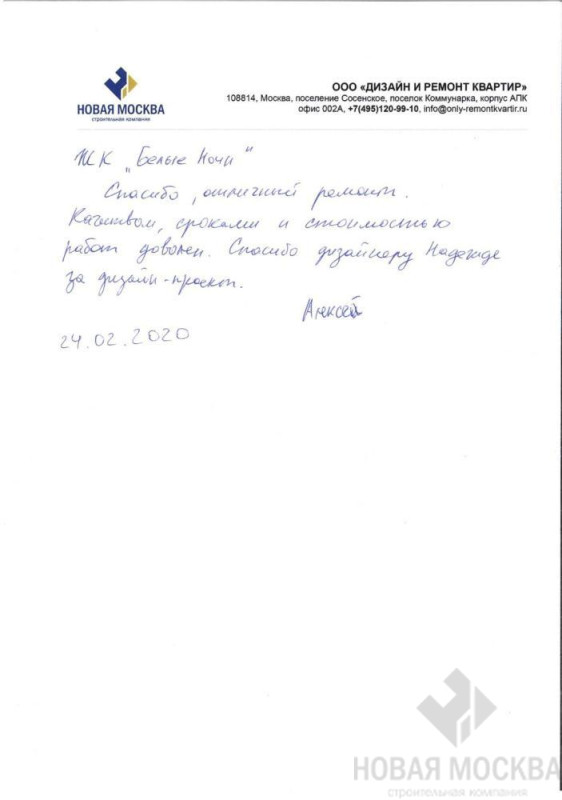 НОВАЯ МОСКВА
строительная компания
ООО «ДИЗАЙН И РЕМОНТ КВАРТИР»
108814, Москва, поселение Сосенское, поселок Коммунарка, корпус АПК
офис 002А, +7(495)120-99-10, info@only-remontkvartir.ru
ЖК „Белые Ночи"
Спасибо, отличный ремонт.
Качеством, сроками и стоимостью
работ доволен. Спасибо дизайнеру Надежде
за дизайн-проект.
Алексей
24.02.2020
НОВАЯ МОСКВА
строительная компания